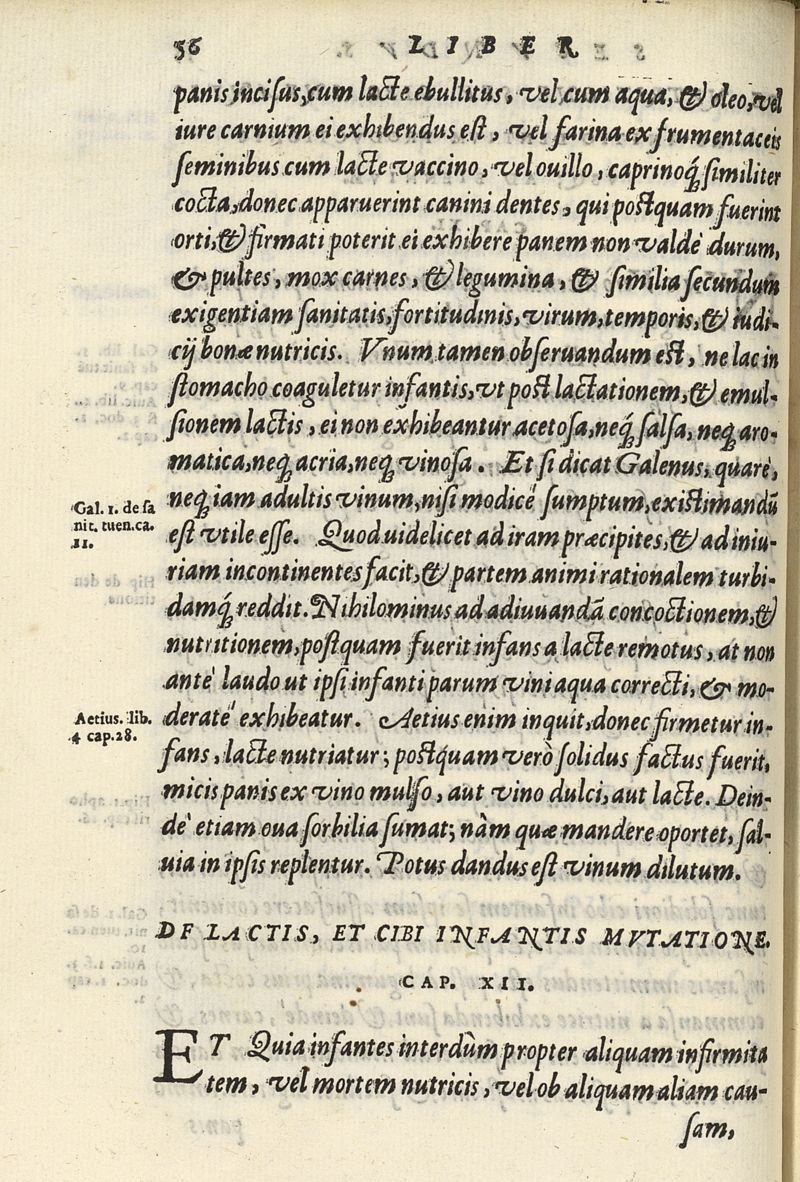 36 LIBER
panis incisus, cum lacte ebullitus, vel cum aqua, & oleo, vel
iure carnium ei exhibendus est, vel farina ex frumentaceis
seminibus cum lacte vaccino, vel ouillo, caprinoq́; similiter
cocta, donec apparuerint canini dentes, qui postquam fuerint
orti, & firmati poterit ei exhibere panem non valdè durum,
& pultes, mox carnes, & legumina, & similia secundum
exigentiam sanitatis, fortitudinis, virum, temporis, & iudi-
cij bonæ nutricis. Vnum tamen obseruandum est, ne lac in
stomacho coaguletur infantis, vt post lactationem, & emul-
sionem lactis, ei non exhibeantur acetosa, neq́; salsa, neq; aro-
matica, neq; acria, neq; vinosa. Et si dicat Galenus, quarè,
Gal. 1. de sa
nit. tuen. ca.
11.
neq; iam adultis vinum, nisi modicè sumptum, existimandū
est vtile esse. Quod uidelicet ad iram præcipites, & ad iniu-
riam incontinentes facit, & partem animi rationalem turbi-
damq́; reddit. Nihilominus ad adiuuandā concoctionem, &
nutritionem, postquam fuerit infans a lacte remotus, at non
antè laudo ut ipsi infanti parum vini aqua correcti, & mo-
Aetius. lib.
4 cap. 28.
deratè exhibeatur. Aetius enim inquit, donec firmetur in-
fans, lacte nutriatur; postquam verò solidus factus fuerit,
micis panis ex vino mulso, aut vino dulci, aut lacte. Dein-
dè etiam oua sorbilia sumat; nàm quæ mandere oportet, sal-
uia in ipsis replentur. Potus dandus est vinum dilutum.
DE LACTIS, ET CIBI INFANTIS MVTATIONE.
CAP. XII.
ET Quia infantes interdùm propter aliquam infirmita
tem, vel mortem nutricis, vel ob aliquam aliam cau-
sam,